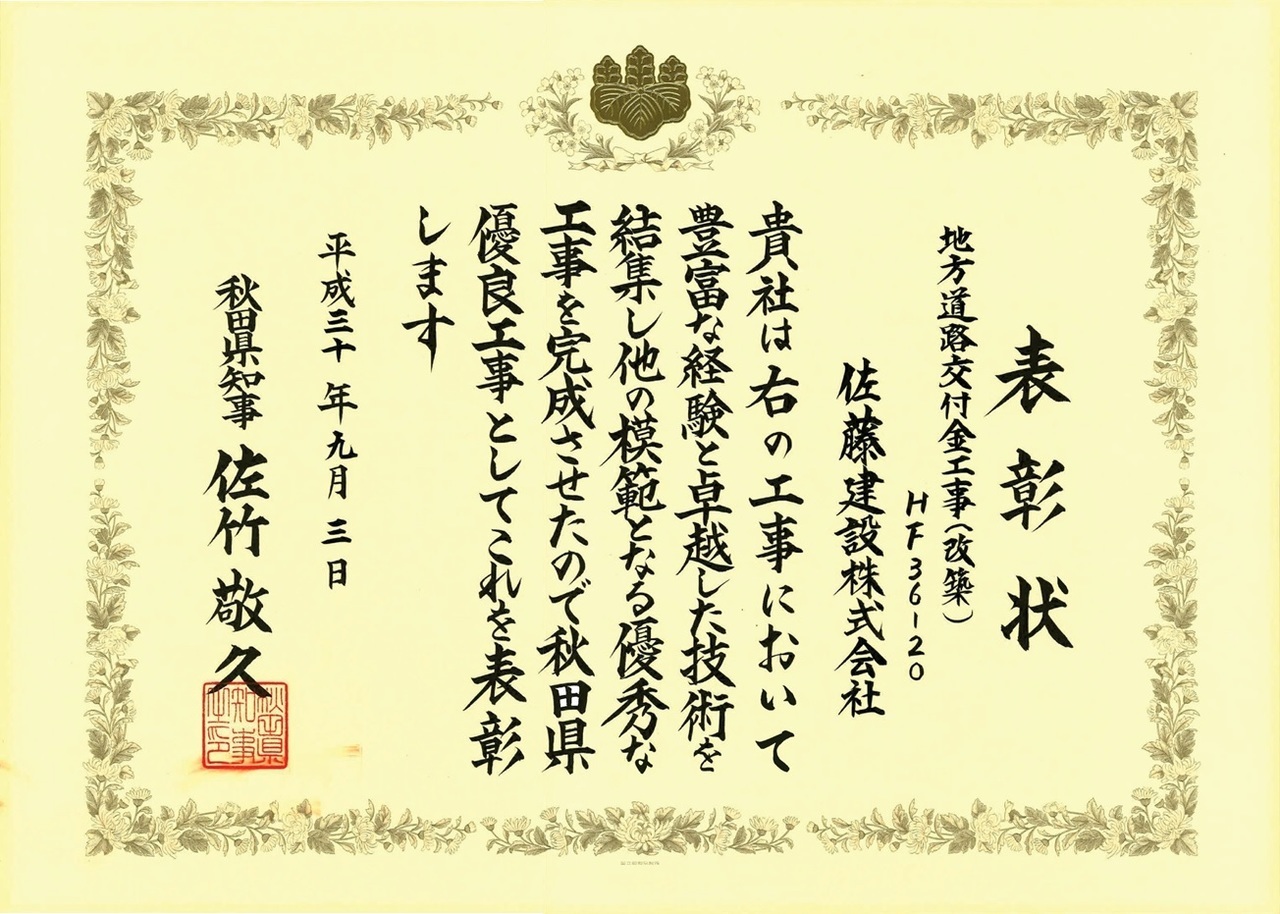 表彰状
地方道路交付金工事(改築)
HF36-20
佐藤建設株式会社
貴社は右の工事において
豊富な経験と卓越した技術を
結集し他の模範となる優秀な
工事を完成させたので秋田県
優良工事としてこれを表彰
します
平成三十年九月三日
秋田県知事 佐竹敬久
秋田県
知事
之印